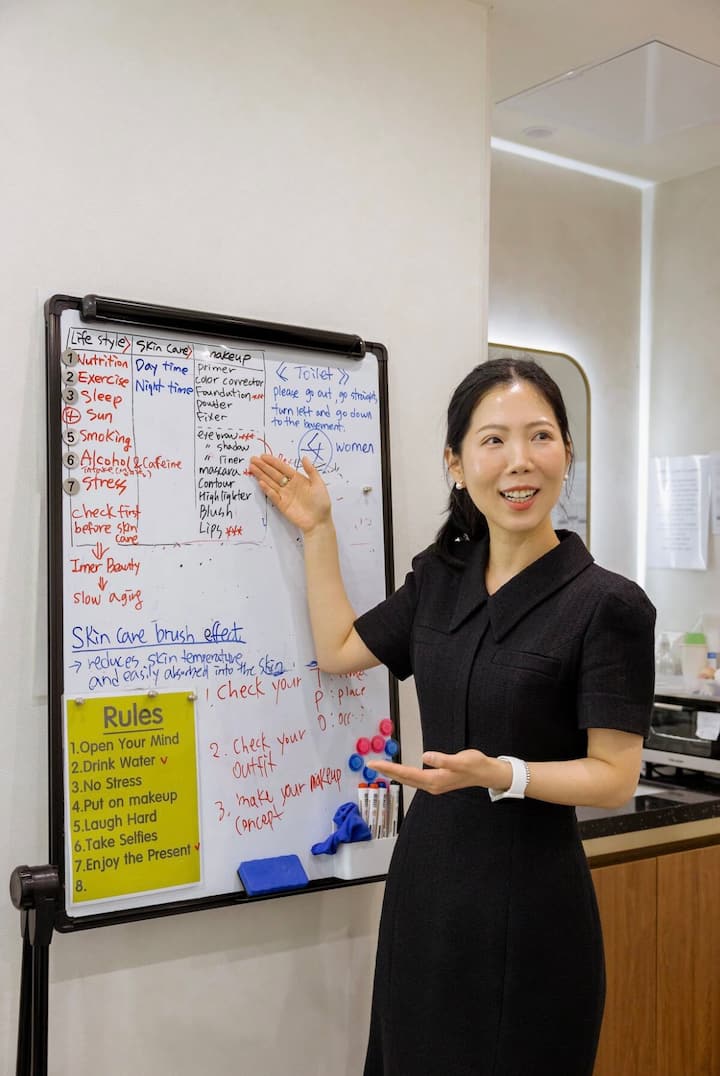 Life style
1 Nutrition
2 Exercise
3 Sleep
4 Sun
5 Smoking
6 Alcohol & Cafeine
7 Stress
check first
before skin
care
Inner Beauty
slow aging
Skin care
Day time
Night time
makeup
primer
color corrector
Foundation ***
powder
Fixer
eyebraw ***
" shadow
" liner
mascara
Contour
Highlighter
Blush
Lips ***
《 Toilet 》
please go out, go straight,
turn left and go down
to the basement.
women
Skin care brush effect.
→ reduces skin temperature
and easily absorbed into the skin
1. Check your
P : place
O : occ
2. Check your
outfit
3. make your makeup
concept
Rules
1.Open Your Mind
2.Drink Water ✓
3.No Stress
4.Put on makeup
5.Laugh Hard
6.Take Selfies
7.Enjoy the Present ✓
8.